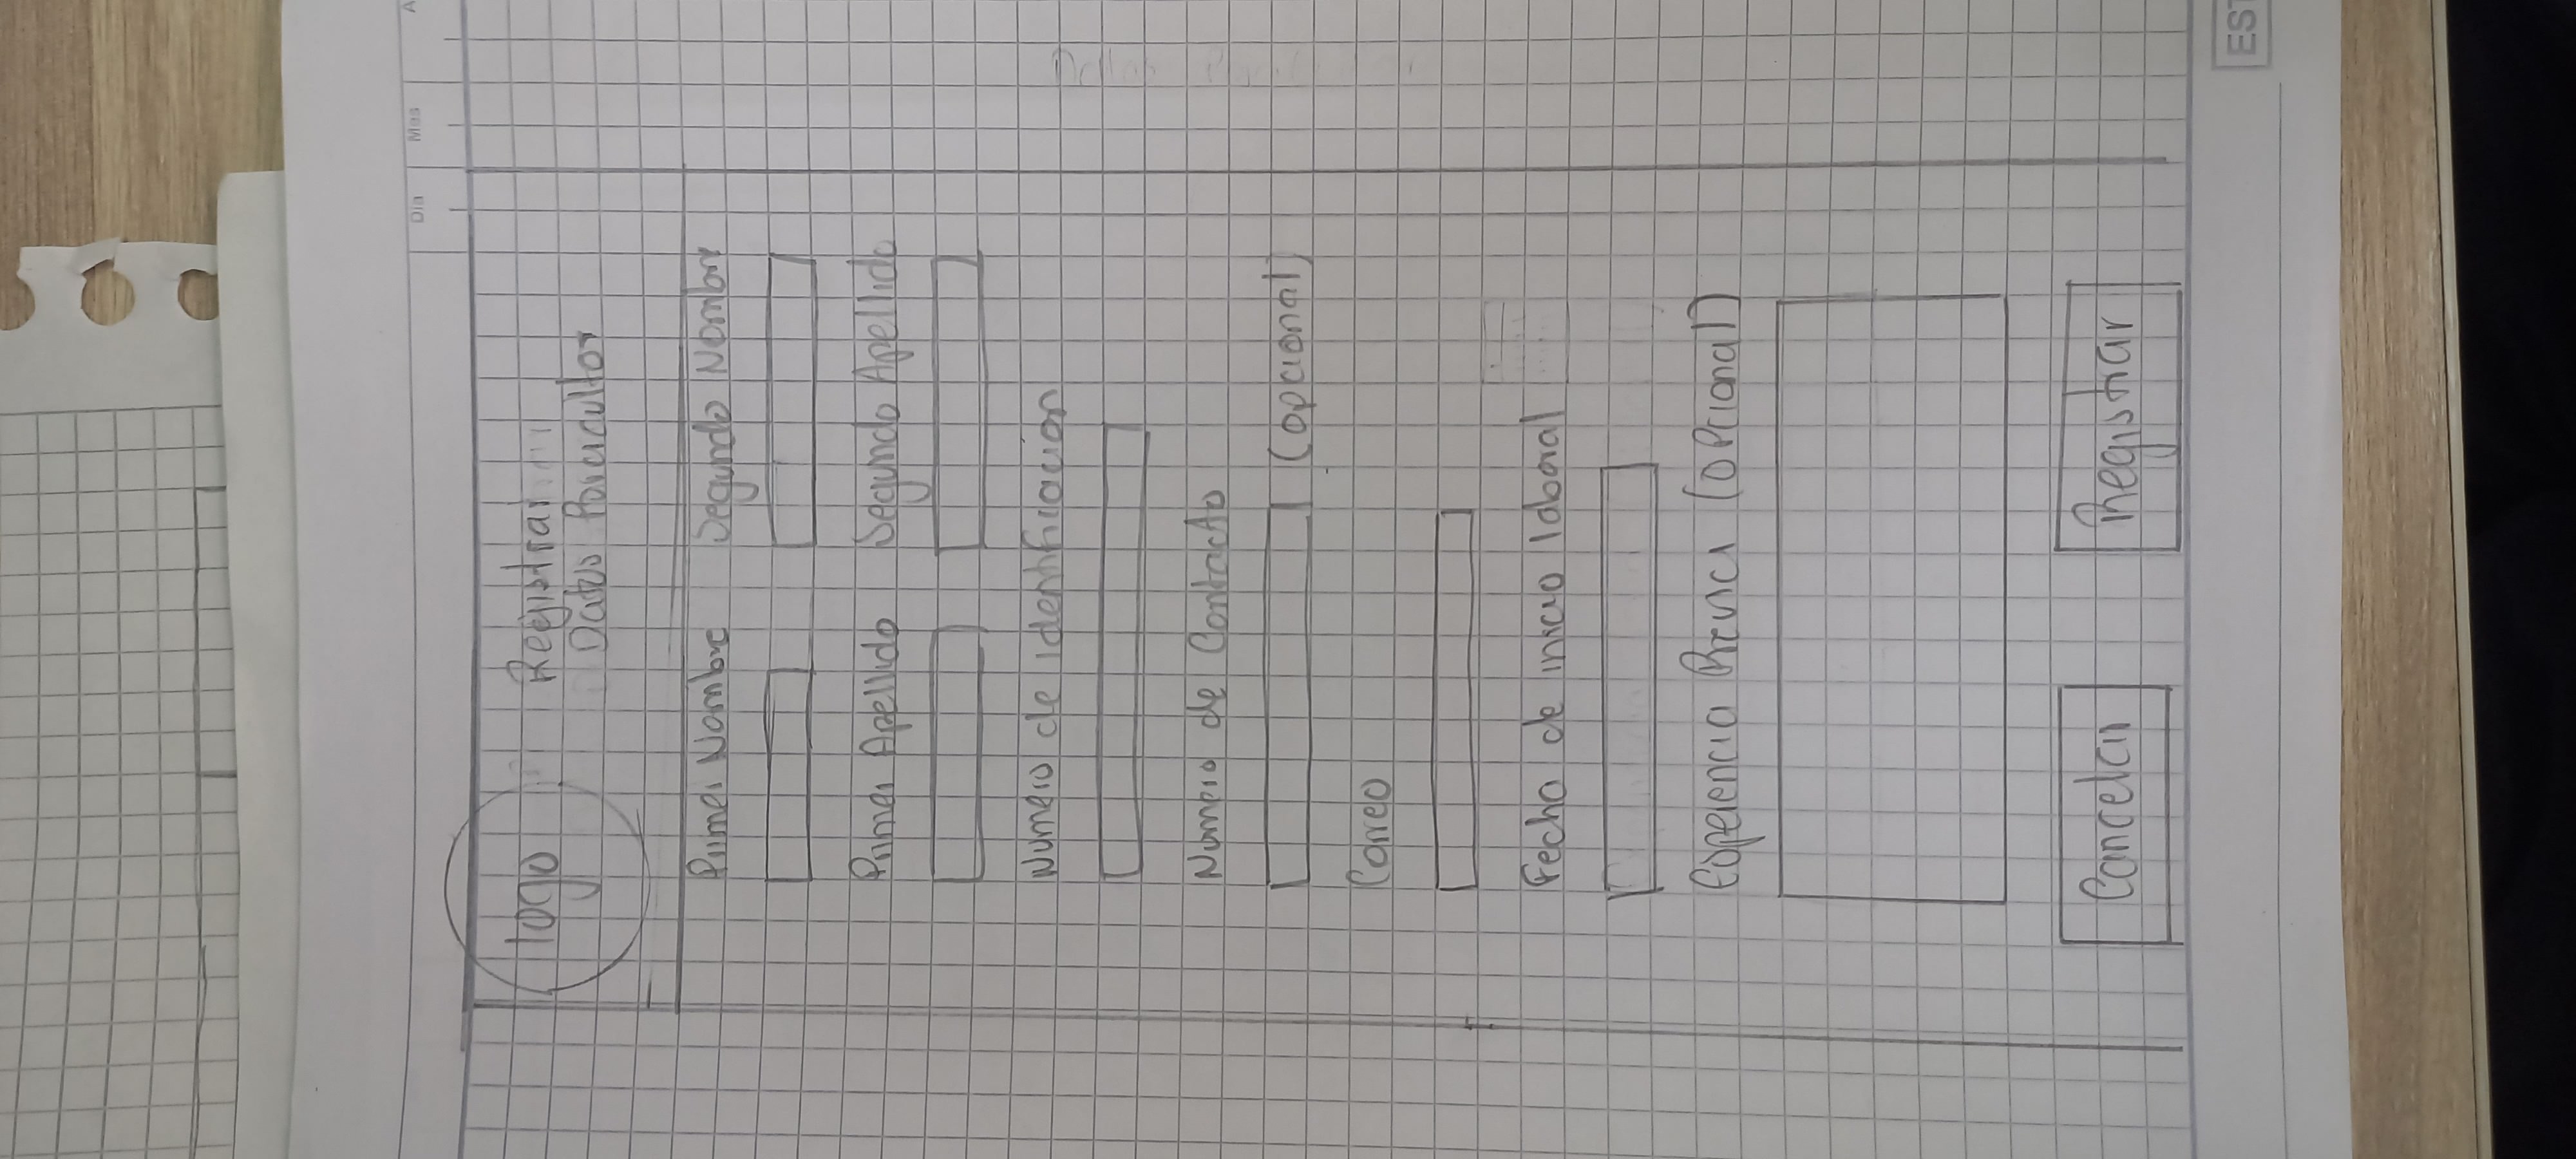 Dia Mes A
logo
Registrar
Datos Porcicultor
Primer Nombre Segundo Nombre
Primer Apellido Segundo Apellido
Numero de identificacion
Numero de Contacto
(opcional)
Correo
Fecha de inicio laboral
Experiencia Previa (opcional)
Cancelar Registrar
EST